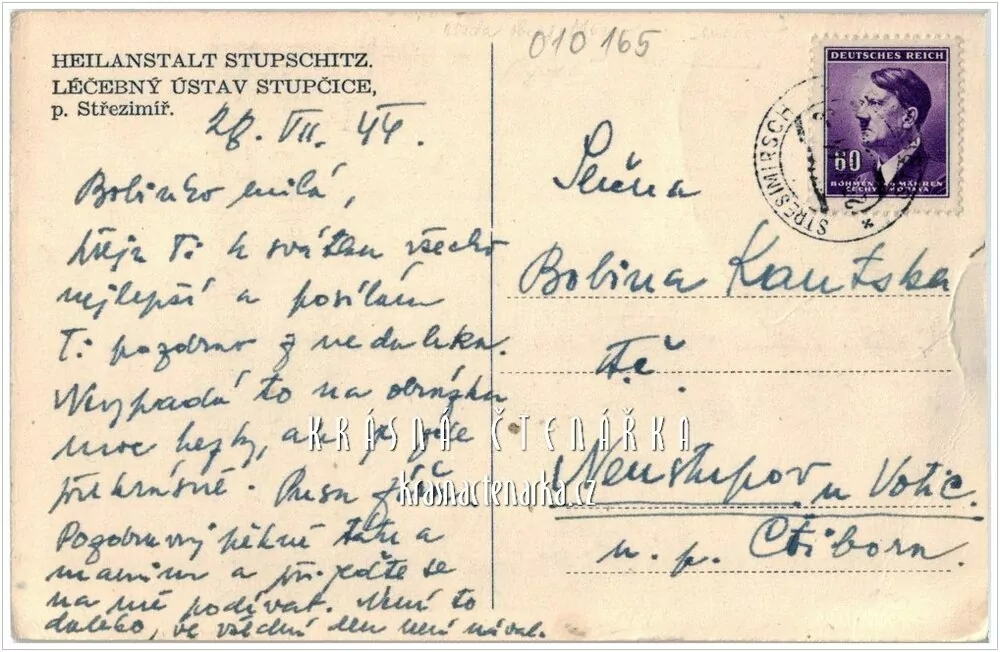 010 165
HEILANSTALT STUPSCHITZ.
LÉČEBNÝ ÚSTAV STUPČICE,
p. Střezimíř.
28. VII. 44.
Bobinko milá,
přeju Ti k svátku všecko
nejlepší a posílám
Ti pozdrav z nedaleka.
Nevypadá to na obrázku
moc hezky, ale je zde
překrásně. Pusu
Pozdravuj pěkně tátu a
maminu a přijeďte se
na mě podívat. Není to
daleko, ve všední den není nával.
DEUTSCHES REICH
60
BÖHMEN u. MÄHREN
ČECHY a MORAVA
STRESIMIRSCH
Slečna
Bobina Kautska
Ač
Neustupov u Votic
u. p. Ctiborn.
KRÁSNÁ ČTENÁŘKA
krasnactenarka.cz